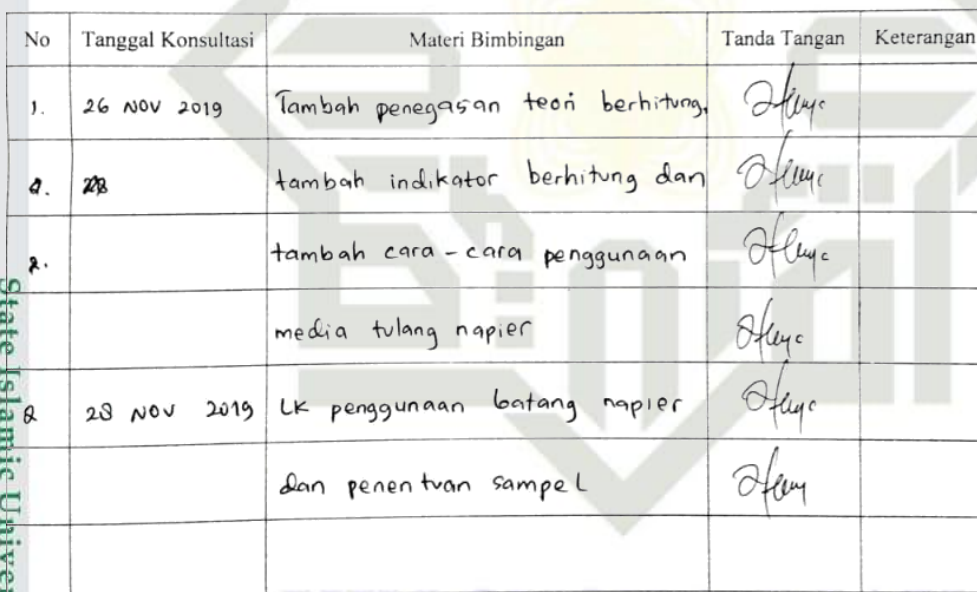 No Tanggal Konsultasi Materi Bimbingan Tanda Tangan Keterangan
1. 26 NOV 2019 Tambah penegasan teori berhitung,
2. tambah indikator berhitung dan
2. tambah cara-cara penggunaan
media tulang napier
2 28 NOV 2019 LK penggunaan batang napier
dan penentuan sampel
State Islamic Univer